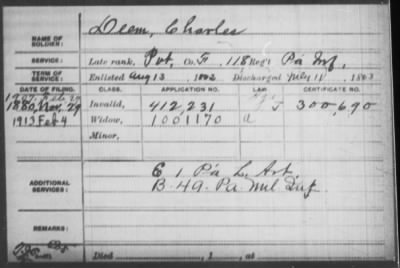 NAME OF SOLDIER: Deem, Charles
SERVICE: Late rank, Pvt, Co. F, 118 Reg't Pa Inf.
TERM OF SERVICE: Enlisted Aug 13, 1862 Discharged May 11, 1863
DATE OF FILING. CLASS. APPLICATION NO. LAW. CERTIFICATE NO.
1880, Nov, 29 Invalid, 412,231 J 300,690
1913 Feb 4 Widow, 1001170 a
Minor,
ADDITIONAL SERVICES: 6 1 Pa L. Art.
B. 49. Pa. Mil Inf
REMARKS:
Died , 1 , at